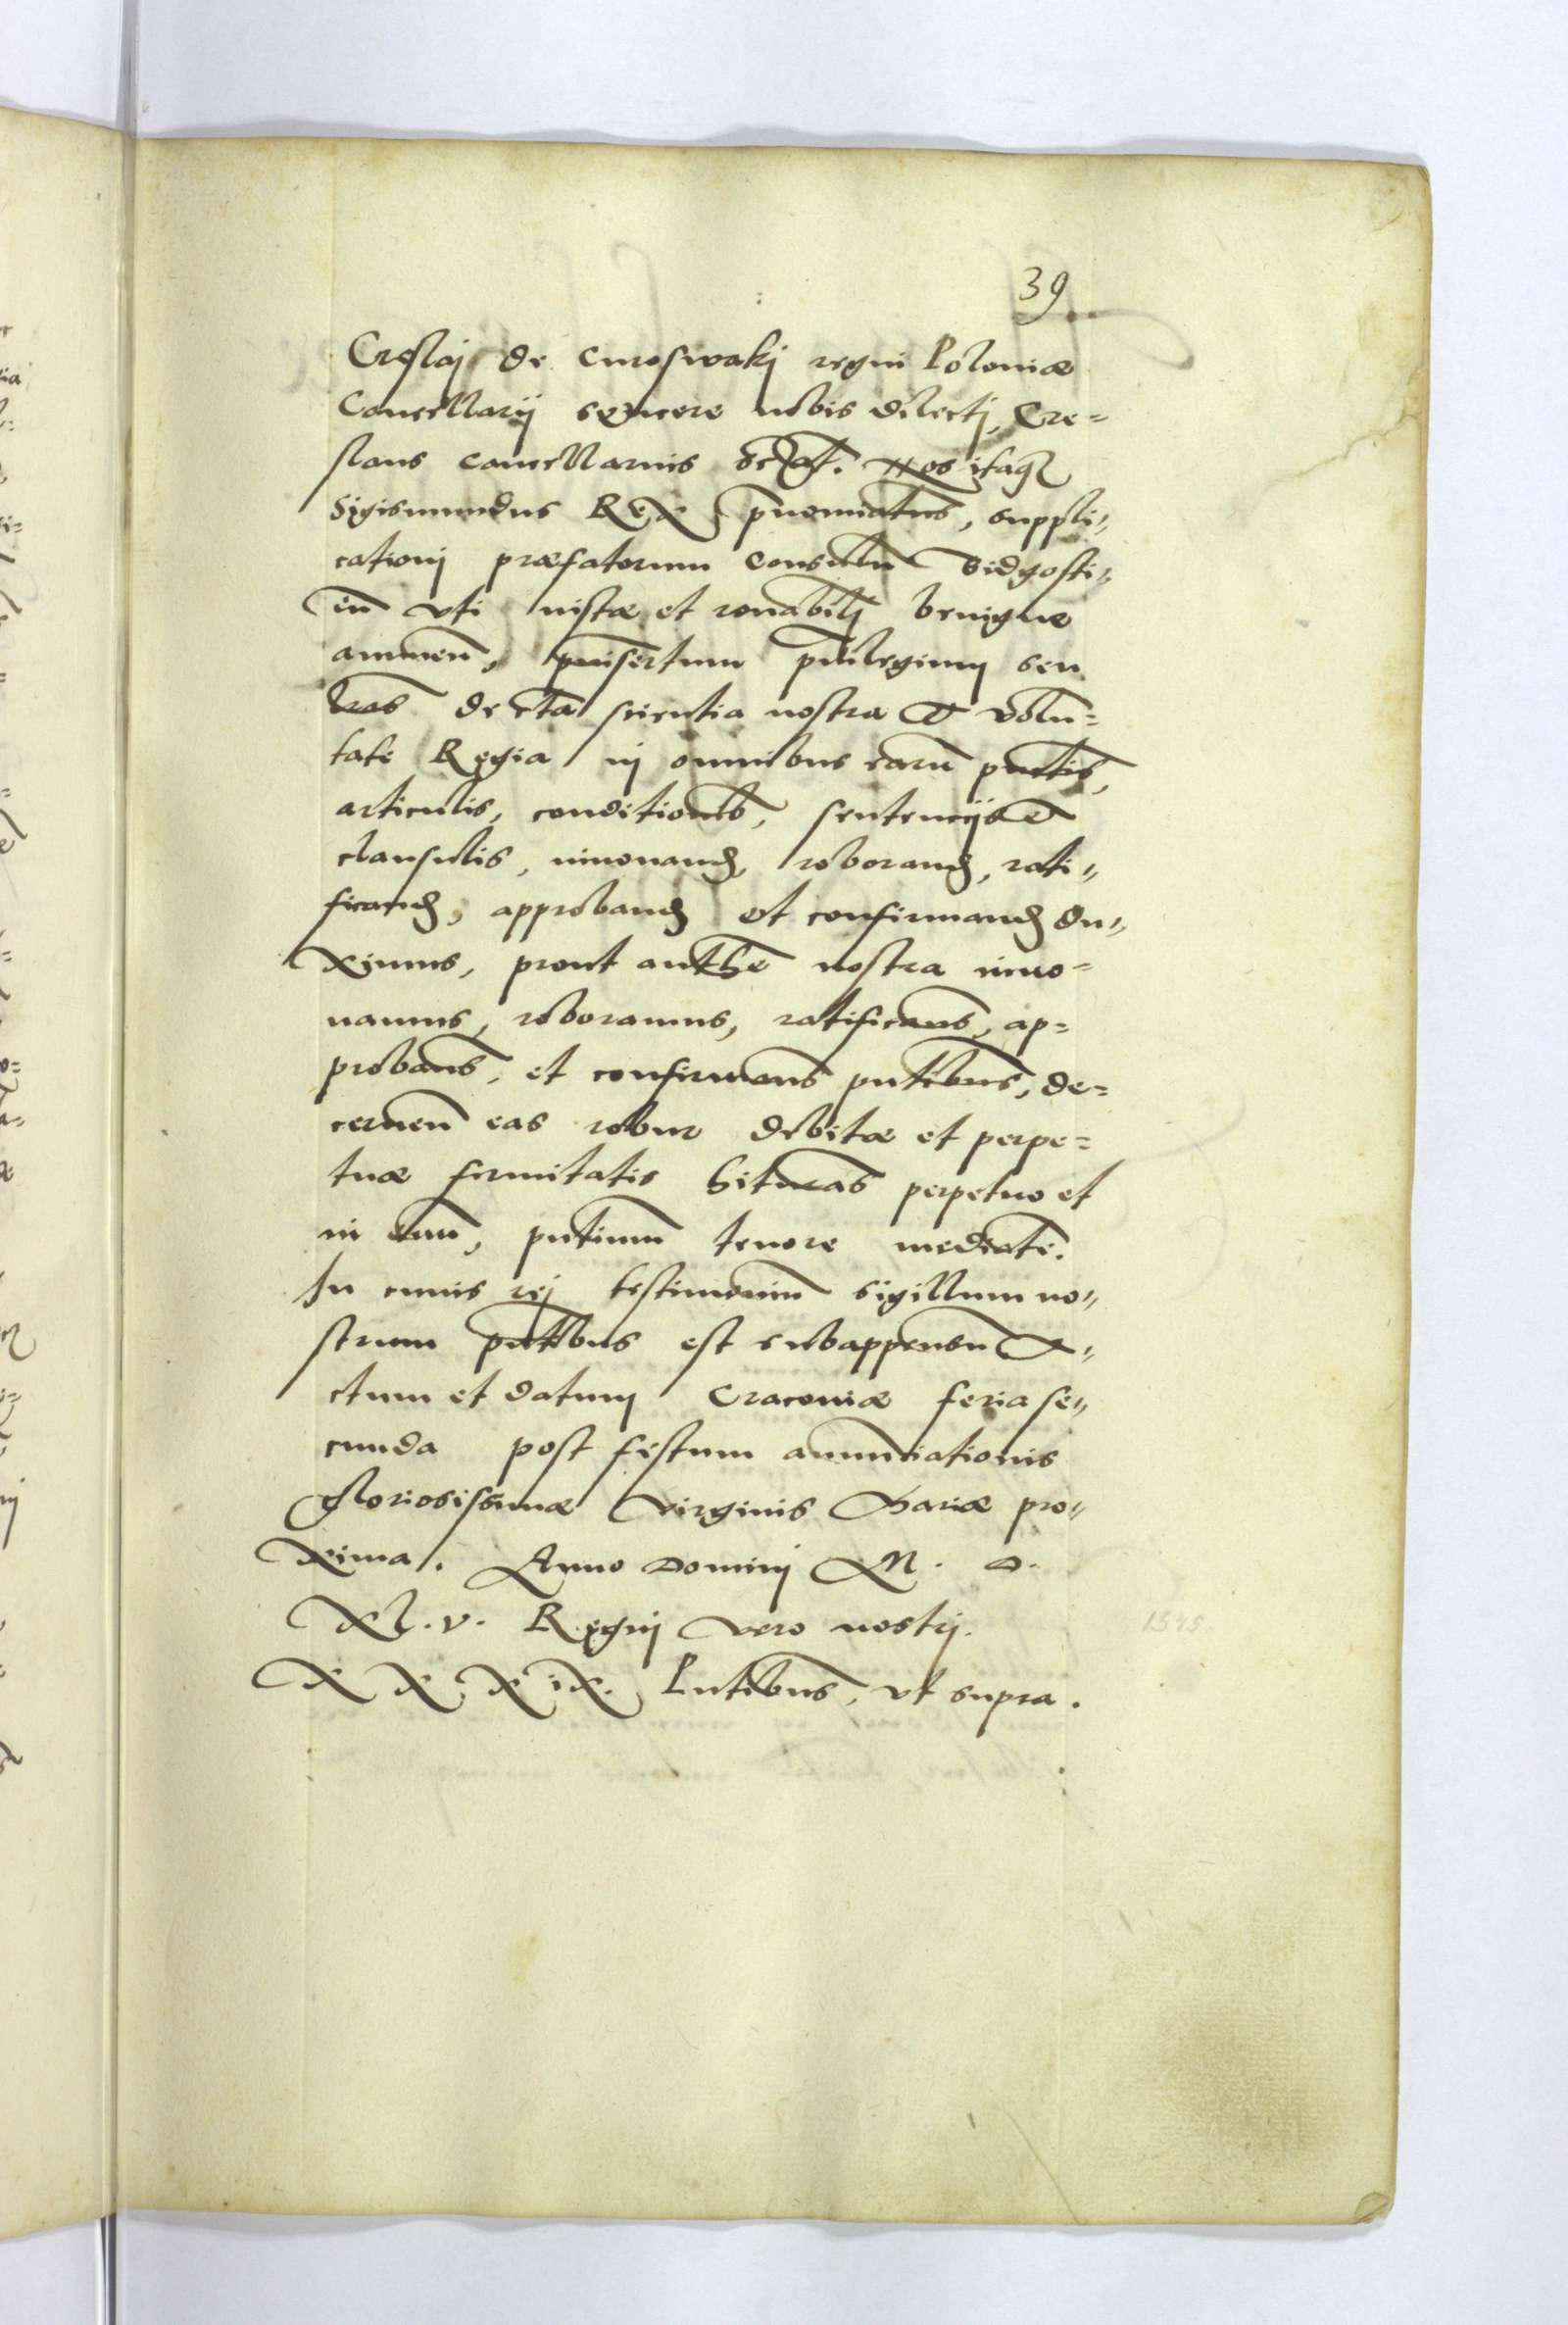 39
Creslaj de Curoswakj regni Poloniæ
Cancellarij syncere nobis dilectj, Cre=
slaus cancellarius sc̄pṡt. Nos itaqȝ
Sigismundus Rex p̄nomiatus, suppli„
cationj præfatorum consulū Bidgosti„
eñ vti iustæ et ronabilj benigne
annueñ, p̄insertum priuilegium seu
lr̄as de cẽta scientia nostra et volun=
tate Regia in omnibus earū punctis,
articulis, conditionib, sententijs et
clausulis, innouand, roborand, rati„
ficand, approband et confirmand du„
ximus, prout authē nostra inno=
uamus, roboramus, ratificams, ap=
probams, et confirmams pntibus, de=
cerneñ eas robur debitæ et perpe=
tuæ firmitatis hituras perpetuo et
in euū, pntium tenore mediante.
In cuius rej testimonium sigillum no„
strum pntibus est subappensū A„
ctum et datum Cracoviæ feria se„
cunda post festum annunciationis
gloriosissimæ virginis Mariæ pro„
xima. Anno Dominj M. D.
Xl. v. Regnj vero nostrj.
X X X iX. Pntibus, vt supra.
1545.